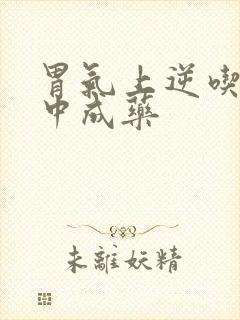 胃氣上逆喫
中成藥
未離妖精